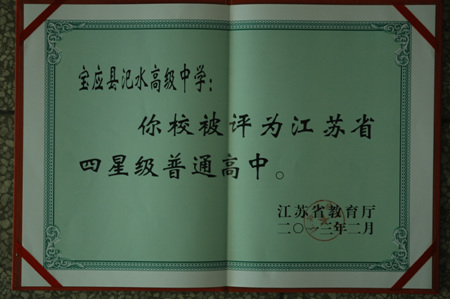 宝应县氾水高级中学：
你校被评为江苏省
四星级普通高中。
江苏省教育厅
二〇一三年二月